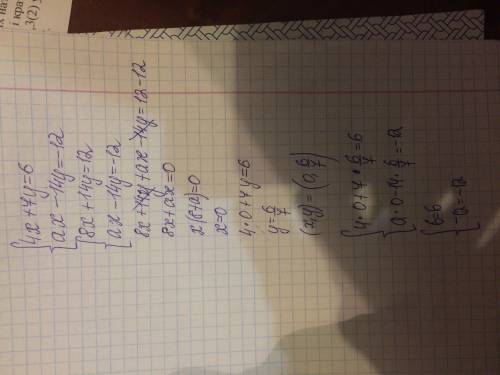 4x+7y=6
ax-14y=-12
8x+14y=12
ax-14y=-12
8x+14y+ax-14y=12-12
8x+ax=0
x(8+a)=0
x=0
4·0+7y=6
y=6/7
(x,y)=(0,6/7)
4·0+7·6/7=6
a·0-14·6/7=-12
6=6
-12=-12